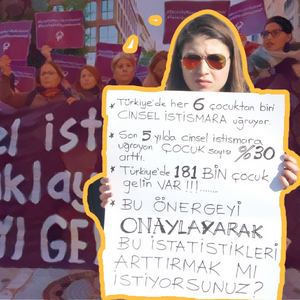 * Türkiye'de her 6 çocuktan biri
CİNSEL İSTİSMARA uğruyor.
* Son 5 yılda cinsel istismara
uğrayan ÇOCUK sayısı %30
arttı.
* Türkiye'de 181 BİN çocuk
gelin VAR !!!.......
* BU ÖNERGEYİ
ONAYLAYARAK
BU İSTATİSTİKLERİ
ARTTIRMAK MI
İSTİYORSUNUZ?